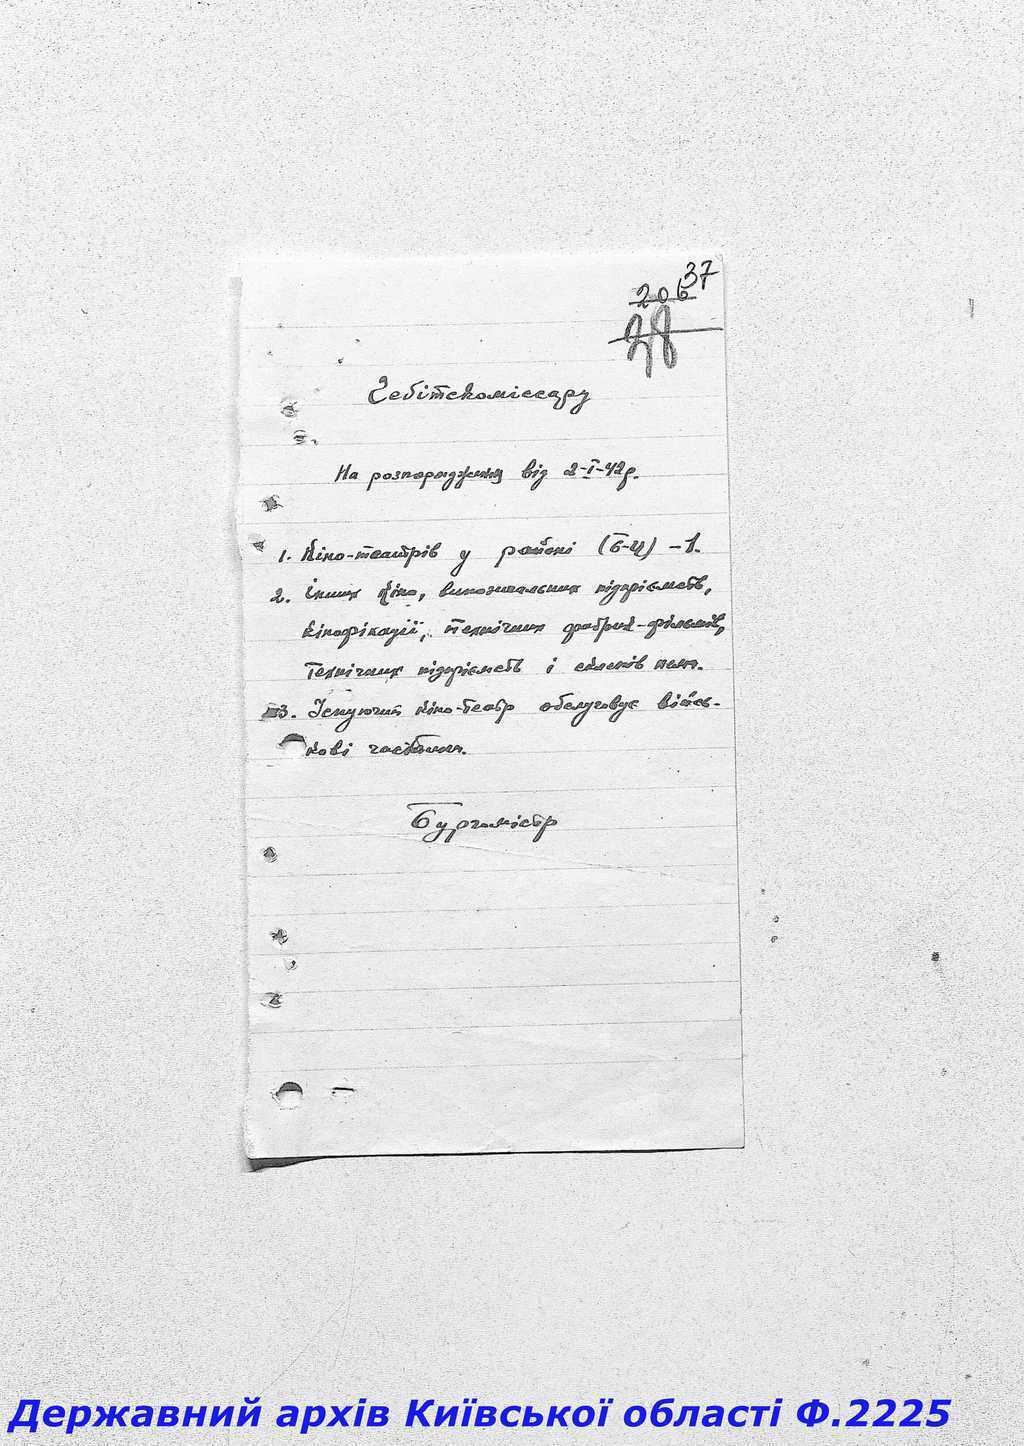 37
206
38
Гебітскоміссару
На розпорядження від 2-I-42р.
1. Кіно-театрів у районі (Б-Ц) – 1.
2. Інших кіно, підприємств,
кінофікації, технічних фабрик-фільмів,
технічних підприємств і складів нема.
3. Існуючий кіно-театр обслуговує війсь-
кові частини.
Бургомістр
Державний архів Київської області Ф.2225